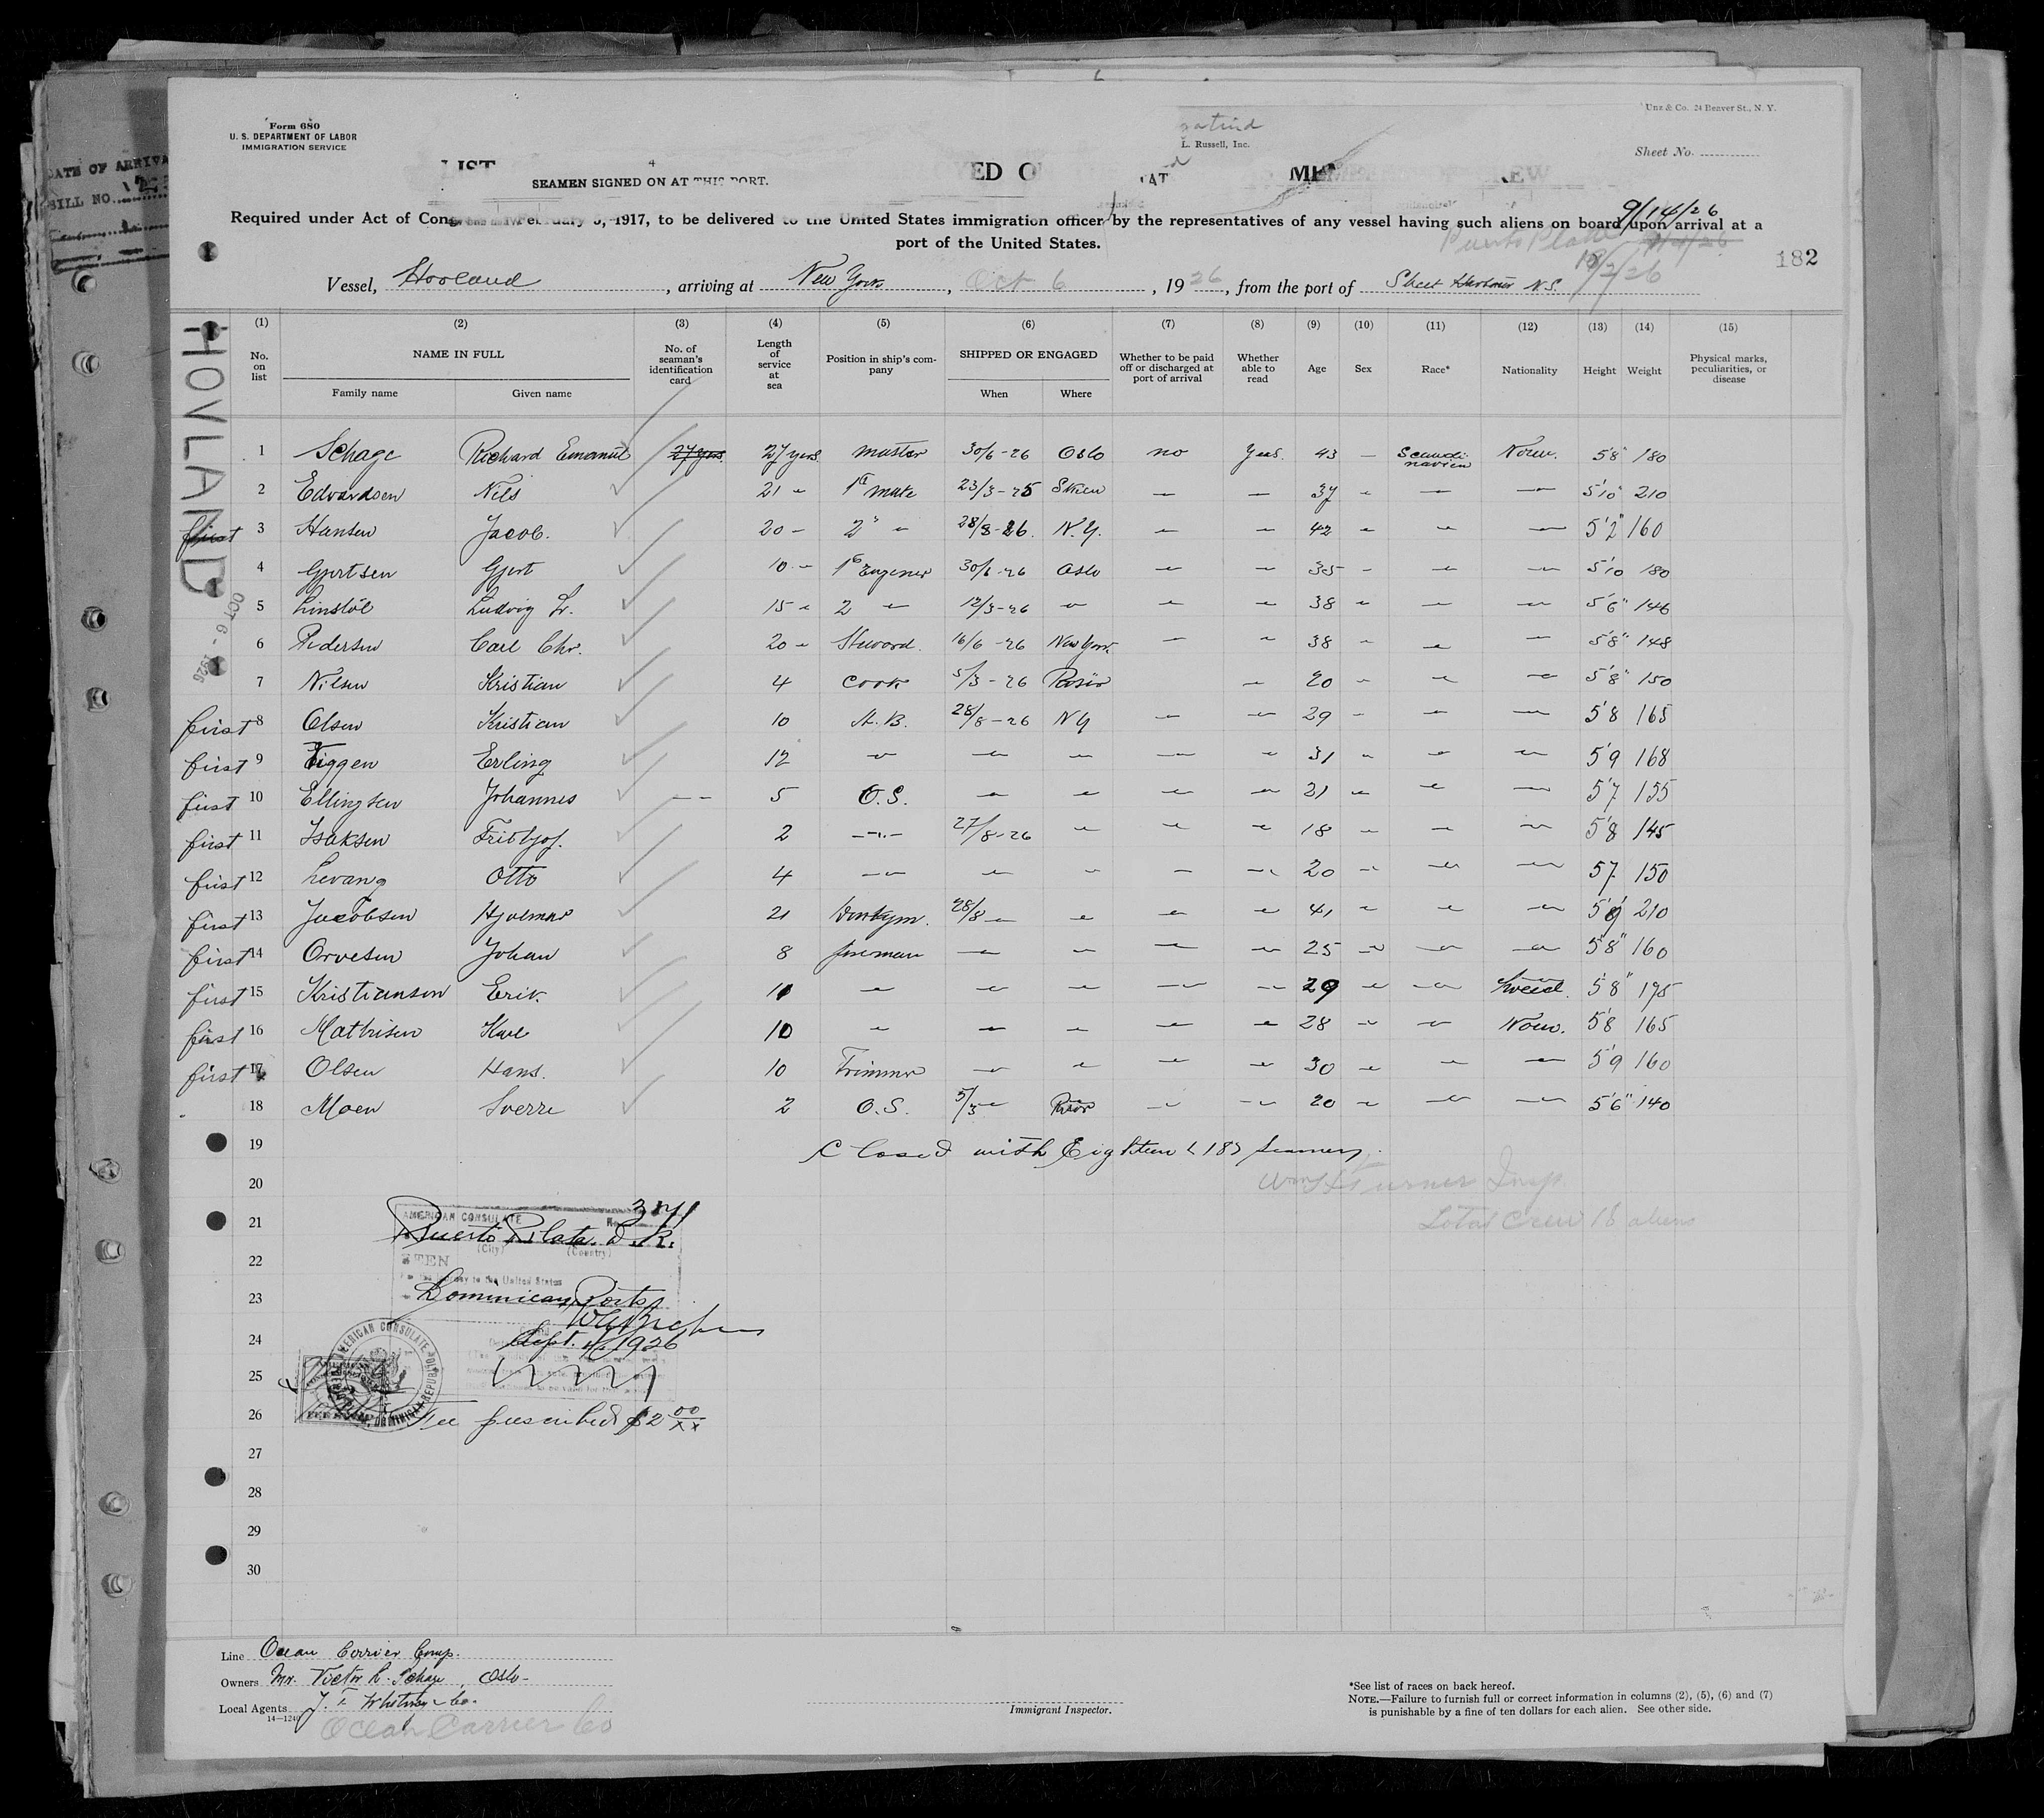 Form 680
U. S. DEPARTMENT OF LABOR
IMMIGRATION SERVICE
Unz & Co. 24 Beaver St., N. Y.
L. Russell, Inc.
Sheet No.
LIST
SEAMEN SIGNED ON AT THIS PORT.
DATE OF ARRIVA
BILL NO.
9/14/26
Required under Act of Cong 5, 1917, to be delivered to the United States immigration officer by the representatives of any vessel having such aliens on board upon arrival at a
port of the United States.
Puerto Plata
182
Vessel, Hovland, arriving at New York, Oct 6, 1926, from the port of Sheet Harbour N.S. 10/2/26
HOVLAND
OCT 6 - 1926
(1) (2) (3) (4) (5) (6) (7) (8) (9) (10) (11) (12) (13) (14) (15)
No. on list
NAME IN FULL
Family name Given name
No. of seaman's identification card
Length of service at sea
Position in ship's company
SHIPPED OR ENGAGED
When Where
Whether to be paid off or discharged at port of arrival
Whether able to read
Age Sex Race* Nationality Height Weight
Physical marks, peculiarities, or disease
1 Schage Richard Emanuel 27 yrs. 27 yrs master 30/6-26 Oslo no Yes. 43 — Scandinavien Norw. 5'8" 180
2 Edvardsen Nils 21 " 1st mate 23/3-25 Skien — — 37 " — — 5'10" 210
first 3 Hansen Jacob. 20 — 2" " 28/8-26. N.Y. — " 42 " " — 5'2" 160
4 Gjertsen Gjert 10 — 1st 30/6-26 Oslo " " 35 - " " 5'10 180
5 Ludvig 15 " 2 " 12/3-26 " " " 38 " — " 5'6" 146
6 Pedersen Carl Chr. 20 " Steward. 16/6-26 New York. — " 38 " " — 5'8" 148
7 Nilsen Kristian 4 Cook 5/3-26 Risör " 20 " " " 5'8" 150
first 8 Olsen Kristian 10 A.B. 28/8-26 NY — " 29 - " — 5'8 165
first 9 Erling 12 " — " — " 31 " " " 5'9 168
first 10 Ellingsen Johannes -- 5 O.S. " " " " 21 " " — 5'7 155
first 11 Isaksen Fridtjof. 2 —"— 27/8-26 " " " 18 " " " 5'8 145
first 12 Levang Otto 4 —" " " - —" 20 " " — 57 150
first 13 Jacobsen Hjalmar 21 28/8 " " " " 41 " " " 5'9 210
first 14 Johan 8 fireman — " — " 25 " " " 5'8" 160
first 15 Kristiansen Erik. 11 " " " — " 29 " " Swed. 5'8" 195
first 16 Mathisen 10 " " " " " 28 " " Norw. 5'8 165
first 17 Olsen Hans. 10 Trimmer " " " " 30 " " — 5'9 160
18 Moen Sverre 2 O.S. 5/3 " Risör " " 20 " — — 5'6" 140
19 Closed with Eighteen (18) seamen.
20
Turner Insp
21
Total Crew 18 aliens
AMERICAN CONSULATE No. 371
Puerto Plata. D.R.
(City) (Country)
22
23 Dominican Ports
24 Sept. 1926
AMERICAN CONSULATE
DOMINICAN REPUBLIC
25
26 Fee prescribed $2 00/xx
27
28
29
30
Line Ocean Carrier Comp.
Owners Mr. Victor L. Schage, Oslo
Local Agents J. F. Whitney & Co.
14-1240
Ocean Carrier Co
Immigrant Inspector.
*See list of races on back hereof.
NOTE.—Failure to furnish full or correct information in columns (2), (5), (6) and (7)
is punishable by a fine of ten dollars for each alien. See other side.